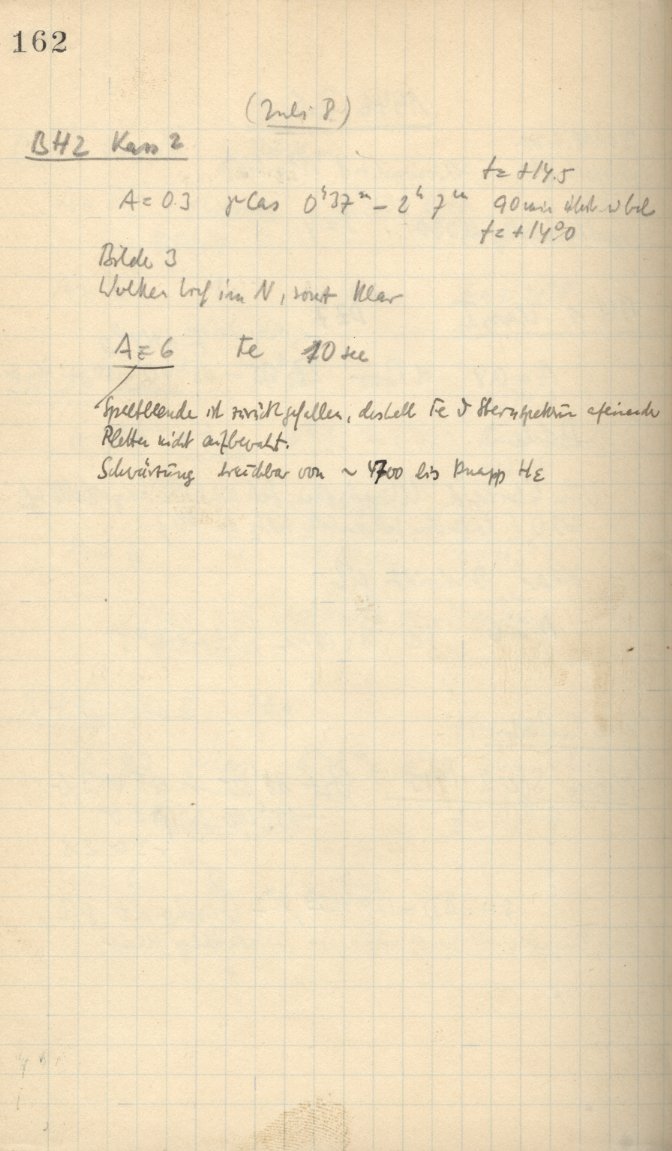 162
(Juli 8)
BH2 Kass 2
t = +14.5
A = 0.3 γ Cas 0ʰ37ᵐ – 2ʰ 7ᵐ 90 min
t = +14°0
Bilde 3
Wolken tief im N, sonst klar
A = 6 Fe 10 sec
Spaltblende ist zurückgefallen, deshalb Fe & Sternspektrum
Platten nicht aufbewahrt.
Schwärzung brauchbar von ~ 4700 bis knapp Hε